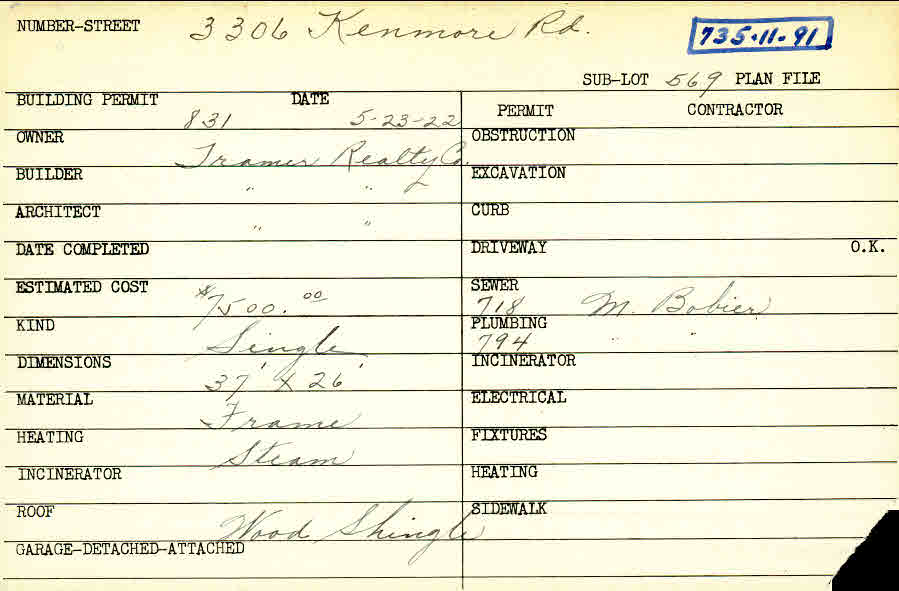 NUMBER-STREET 3306 Kenmore Rd. 735-11-91
SUB-LOT 569 PLAN FILE
BUILDING PERMIT 831 DATE 5-23-22
PERMIT CONTRACTOR
OWNER Tramer Realty Co.
OBSTRUCTION
BUILDER " "
EXCAVATION
ARCHITECT " "
CURB
DATE COMPLETED
DRIVEWAY O.K.
ESTIMATED COST $7500.00
SEWER 718 M. Bobier
KIND Single
PLUMBING 794 " "
DIMENSIONS 37' x 26'
INCINERATOR
MATERIAL Frame
ELECTRICAL
HEATING Steam
FIXTURES
INCINERATOR
HEATING
ROOF Wood Shingle
SIDEWALK
GARAGE-DETACHED-ATTACHED